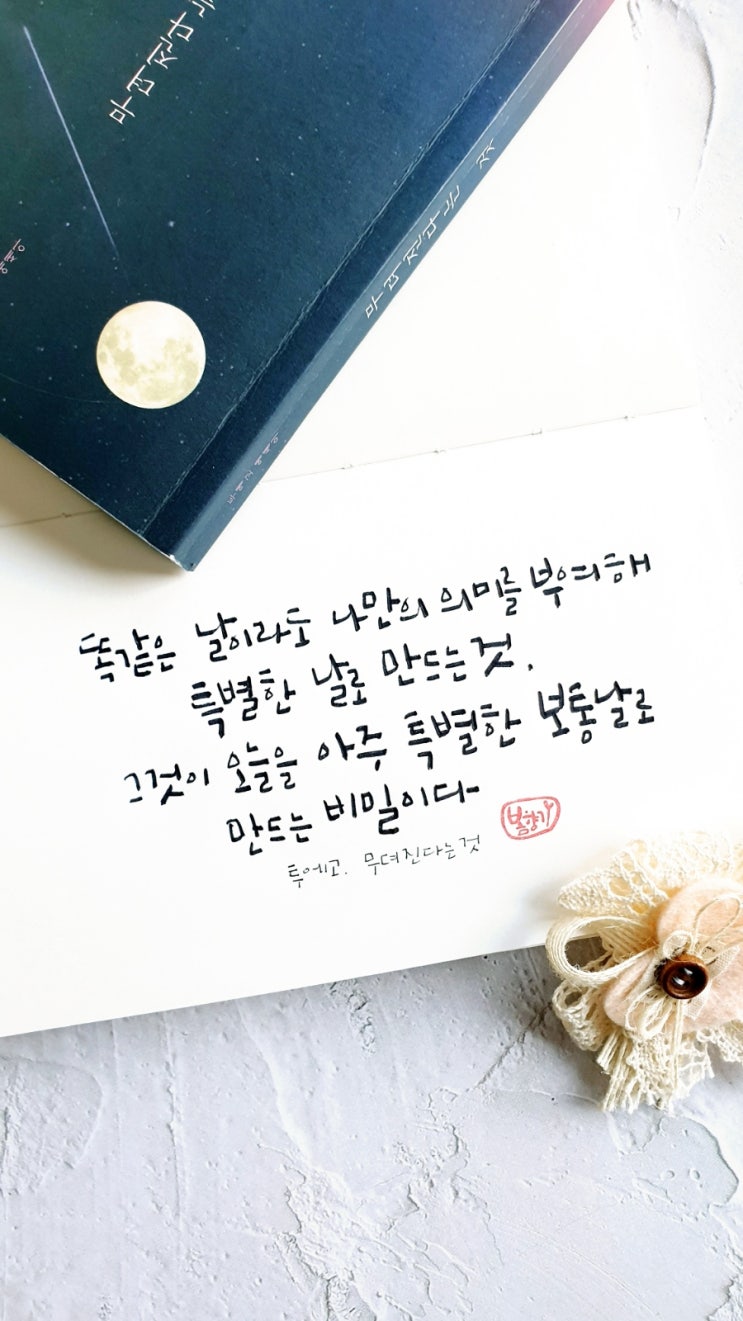 무뎌진다는
무뎌진다는 것
똑같은 날이라도 나만의 의미를 부여해
특별한 날로 만드는것.
그것이 오늘을 아주 특별한 보통날로
만드는 비밀이다
봄향기
투에고. 무뎌진다는것